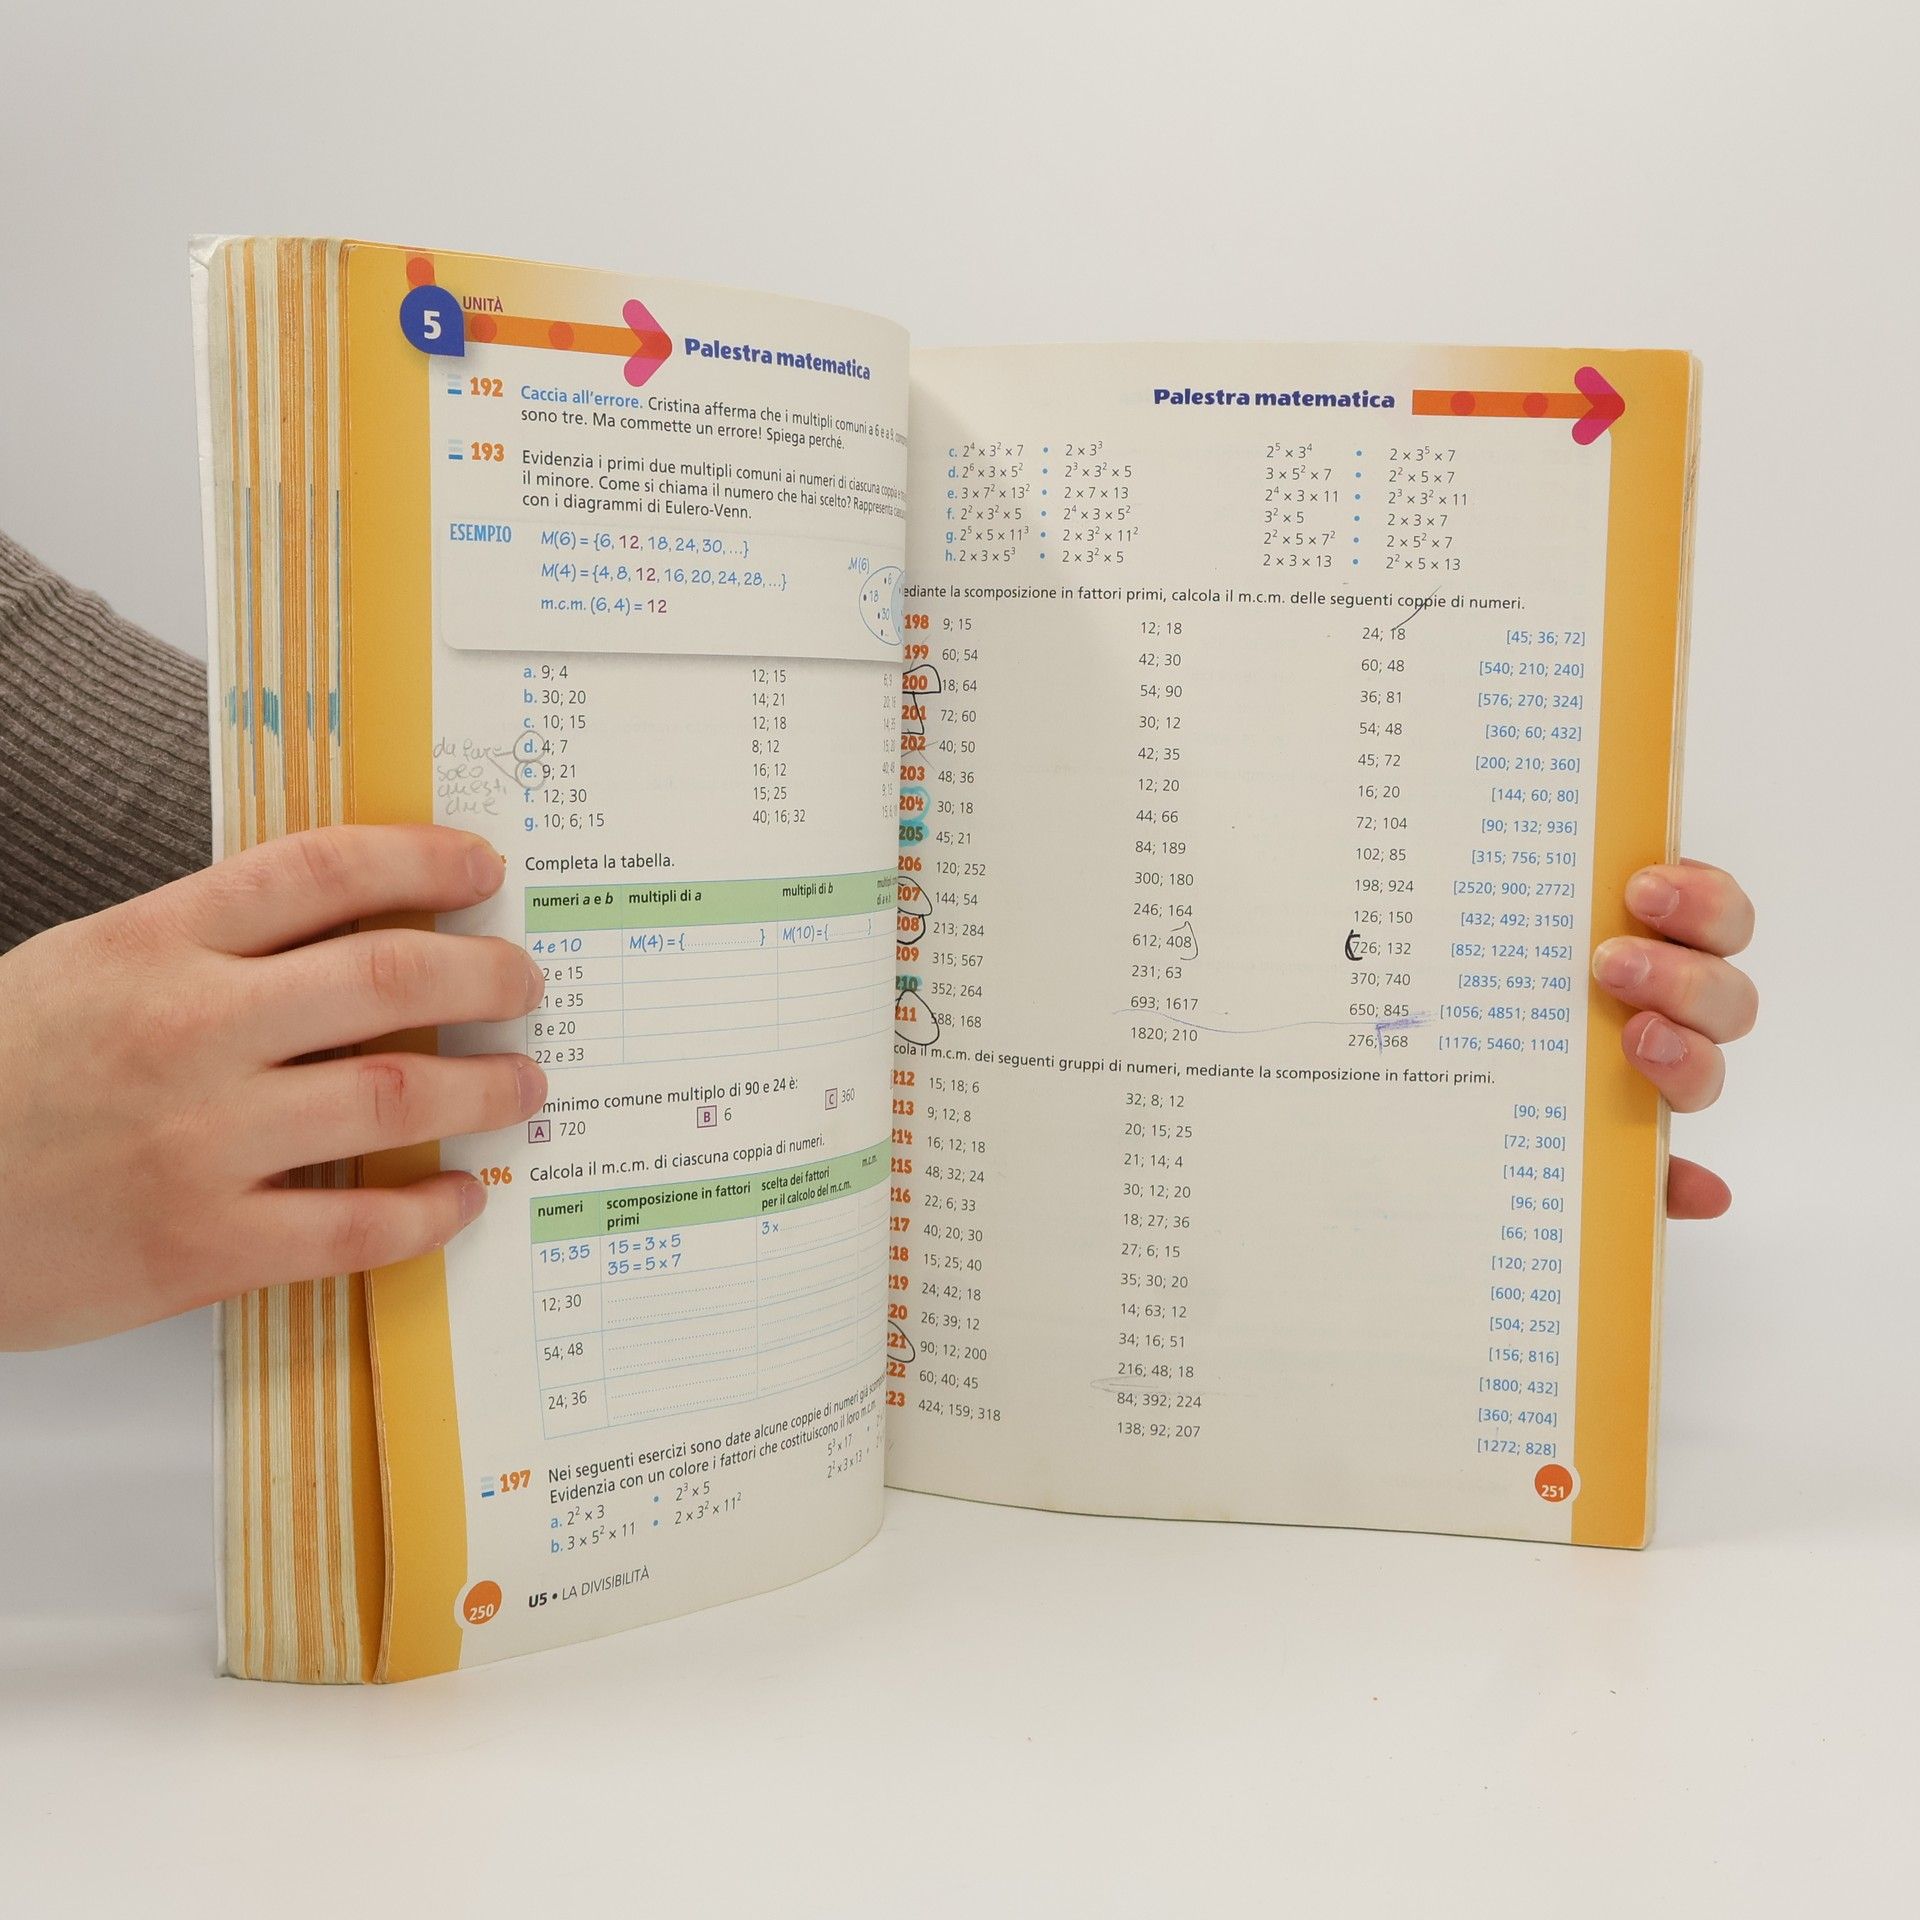 UNITÀ
5
Palestra matematica
192 Caccia all'errore. Cristina afferma che i multipli comuni a 6 e a 9
sono tre. Ma commette un errore! Spiega perché.
193 Evidenzia i primi due multipli comuni ai numeri di ciascuna coppia e
il minore. Come si chiama il numero che hai scelto? Rappresenta
con i diagrammi di Eulero-Venn.
ESEMPIO M(6) = {6, 12, 18, 24, 30, ...}
M(4) = {4, 8, 12, 16, 20, 24, 28, ...}
m.c.m. (6, 4) = 12
M(6)
6
18
30
a. 9; 4 12; 15 6; 9
b. 30; 20 14; 21
c. 10; 15 12; 18
d. 4; 7 8; 12
e. 9; 21 16; 12
f. 12; 30 15; 25
g. 10; 6; 15 40; 16; 32
da fare
solo
questi
due
Completa la tabella.
numeri a e b multipli di a multipli di b
4 e 10 M(4) = {..........} M(10) = {..........}
2 e 15
1 e 35
8 e 20
22 e 33
minimo comune multiplo di 90 e 24 è:
A 720 B 6 C 360
196 Calcola il m.c.m. di ciascuna coppia di numeri.
numeri scomposizione in fattori primi scelta dei fattori per il calcolo del m.c.m. m.c.m.
15; 35 15 = 3 × 5 3 ×
35 = 5 × 7
12; 30
54; 48
24; 36
197 Nei seguenti esercizi sono date alcune coppie di numeri già
Evidenzia con un colore i fattori che costituiscono il loro m.c.m.
a. 2² × 3 • 2³ × 5 5³ × 17
b. 3 × 5² × 11 • 2 × 3² × 11² 2² × 3 × 13
250 U5 • LA DIVISIBILITÀ
Palestra matematica
c. 2⁴ × 3² × 7 • 2 × 3³ 2⁵ × 3⁴ • 2 × 3⁵ × 7
d. 2⁶ × 3 × 5² • 2³ × 3² × 5 3 × 5² × 7 • 2² × 5 × 7
e. 3 × 7² × 13² • 2 × 7 × 13 2⁴ × 3 × 11 • 2³ × 3² × 11
f. 2² × 3² × 5 • 2⁴ × 3 × 5² 3² × 5 • 2 × 3 × 7
g. 2⁵ × 5 × 11³ • 2 × 3² × 11² 2² × 5 × 7² • 2 × 5² × 7
h. 2 × 3 × 5³ • 2 × 3² × 5 2 × 3 × 13 • 2² × 5 × 13
ediante la scomposizione in fattori primi, calcola il m.c.m. delle seguenti coppie di numeri.
198 9; 15 12; 18 24; 18 [45; 36; 72]
199 60; 54 42; 30 60; 48 [540; 210; 240]
200 18; 64 54; 90 36; 81 [576; 270; 324]
201 72; 60 30; 12 54; 48 [360; 60; 432]
202 40; 50 42; 35 45; 72 [200; 210; 360]
203 48; 36 12; 20 16; 20 [144; 60; 80]
204 30; 18 44; 66 72; 104 [90; 132; 936]
205 45; 21 84; 189 102; 85 [315; 756; 510]
206 120; 252 300; 180 198; 924 [2520; 900; 2772]
207 144; 54 246; 164 126; 150 [432; 492; 3150]
208 213; 284 612; 408 726; 132 [852; 1224; 1452]
209 315; 567 231; 63 370; 740 [2835; 693; 740]
210 352; 264 693; 1617 650; 845 [1056; 4851; 8450]
211 588; 168 1820; 210 276; 368 [1176; 5460; 1104]
cola il m.c.m. dei seguenti gruppi di numeri, mediante la scomposizione in fattori primi.
212 15; 18; 6 32; 8; 12 [90; 96]
213 9; 12; 8 20; 15; 25 [72; 300]
214 16; 12; 18 21; 14; 4 [144; 84]
215 48; 32; 24 30; 12; 20 [96; 60]
216 22; 6; 33 18; 27; 36 [66; 108]
217 40; 20; 30 27; 6; 15 [120; 270]
218 15; 25; 40 35; 30; 20 [600; 420]
219 24; 42; 18 14; 63; 12 [504; 252]
220 26; 39; 12 34; 16; 51 [156; 816]
221 90; 12; 200 216; 48; 18 [1800; 432]
222 60; 40; 45 84; 392; 224 [360; 4704]
223 424; 159; 318 138; 92; 207 [1272; 828]
251